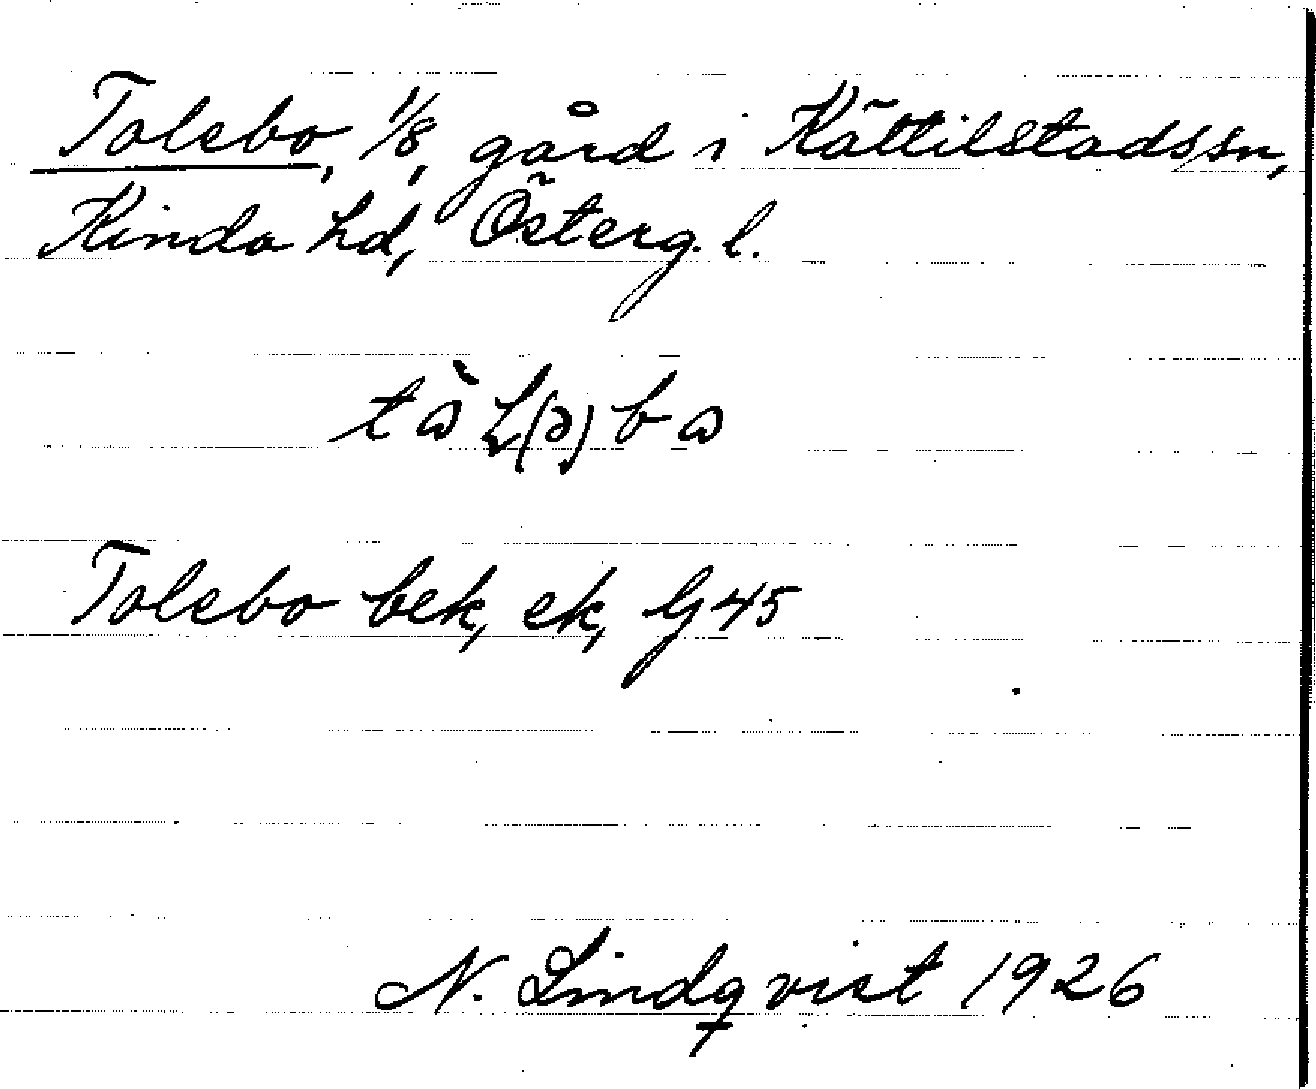 Tolebo, 1/8, gård i Kättilstads sn,
Kinda hd, Österg. l.
tὼL(ə)bω
Tolebo bek, ek, G 45
N. Lindqvist 1926